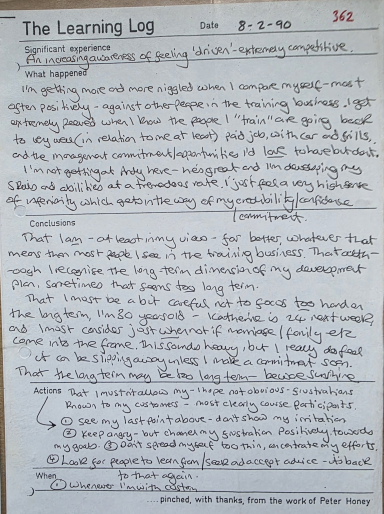 362
The Learning Log Date 8-2-90
Significant experience
An increasing awareness of feeling 'driven' - extremely competitive.
What happened
I'm getting more and more niggled when I compare myself - most
often positively - against other people in the training business. I get
extremely peeved when I know the people I "train" are going back
to very well (in relation to me at least) paid job, with car and frills,
and the management commitment/opportunities I'd love to have but don't.
I'm not getting at Andy here - he's great and I'm developing my
skills and abilities at a tremendous rate. I just feel a very high sense
of inferiority which gets in the way of my credibility/confidence
/commitment.
Conclusions
That I am - at least in my view - far better, whatever that
means than most people I see in the training business. That alth-
ough I recognise the long-term dimension of my development
plan, sometimes that seems too long term.
That I must be a bit careful not to focus too hard on
the long term, I'm 30 years old - Katherine is 24 next week,
and I must consider just when/not if marriage/family etc
come into the frame. This sounds heavy, but I really do feel
it can be slipping away unless I make a commitment soon.
That the long term may be too long term - beware sunshine.
Actions That I must not allow my - I hope not obvious - frustrations
known to my customers - most clearly course participants.
① See my last point above - don't show my irritation
② Keep angry - but channel my frustration positively towards
my goals. ③ Don't spread myself too thin, concentrate my efforts.
④ Look for people to learn from/seek and accept advice - go back
When to that again.
① Whenever I'm with custom
....pinched, with thanks, from the work of Peter Honey